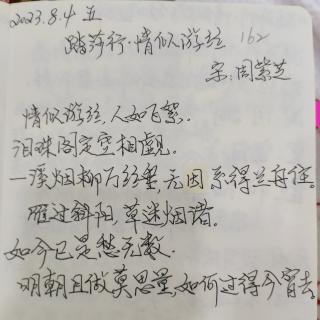 2023.8.4 五
踏莎行·情似游丝 162
宋:周紫芝
情似游丝,人如飞絮.
泪珠阁定空相觑.
一溪烟柳万丝垂,无因系得兰舟住.
雁过斜阳,草迷烟渚.
如今已是愁无数.
明朝且做莫思量,如何过得今宵去